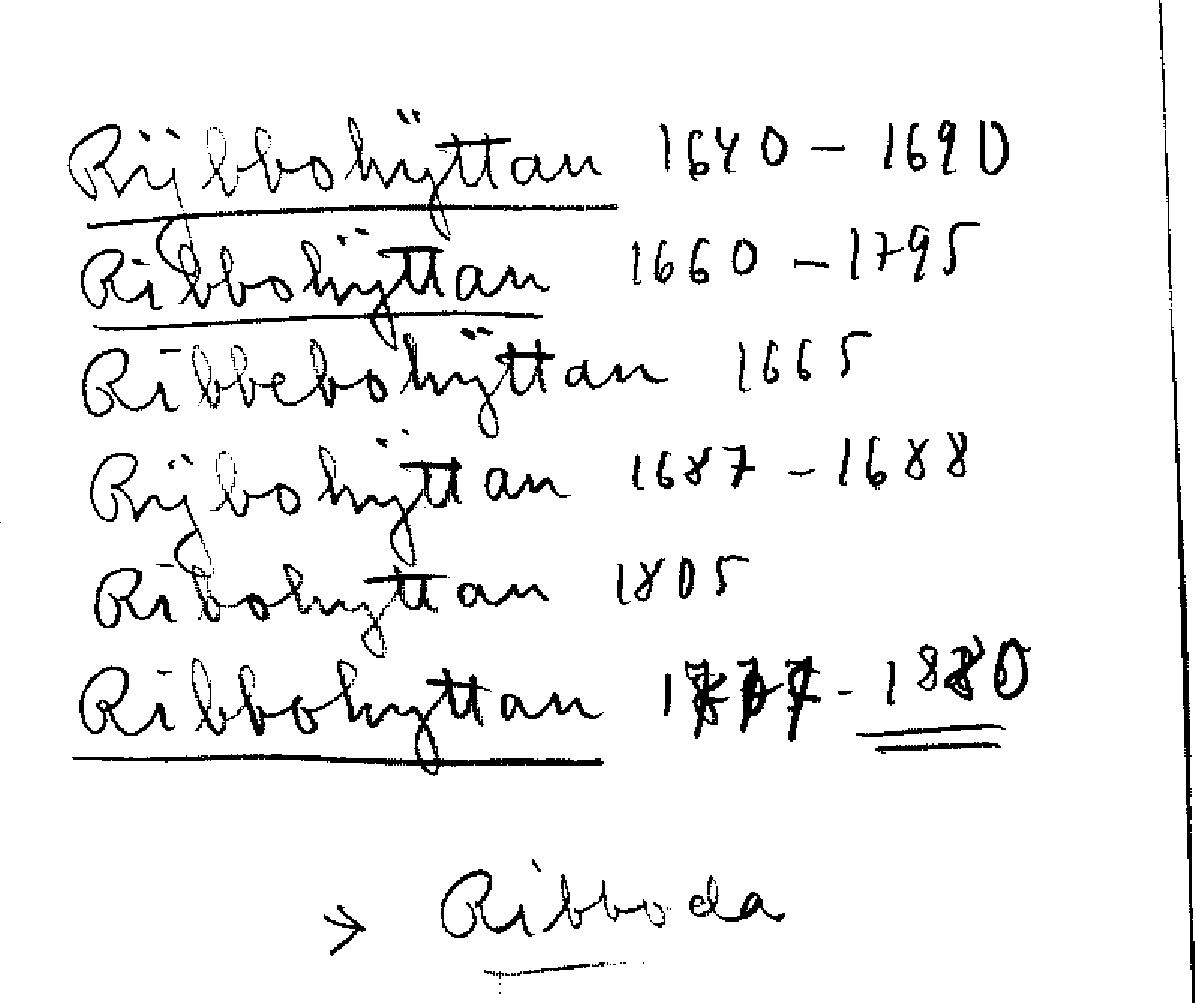 Rijbbohÿttan 1640 – 1690
Ribbohÿttan 1660 – 1795
Ribbebohÿttan 1665
Rijbohÿttan 1687 – 1688
Ribohyttan 1805
Ribbohyttan - 1880
→ Ribboda